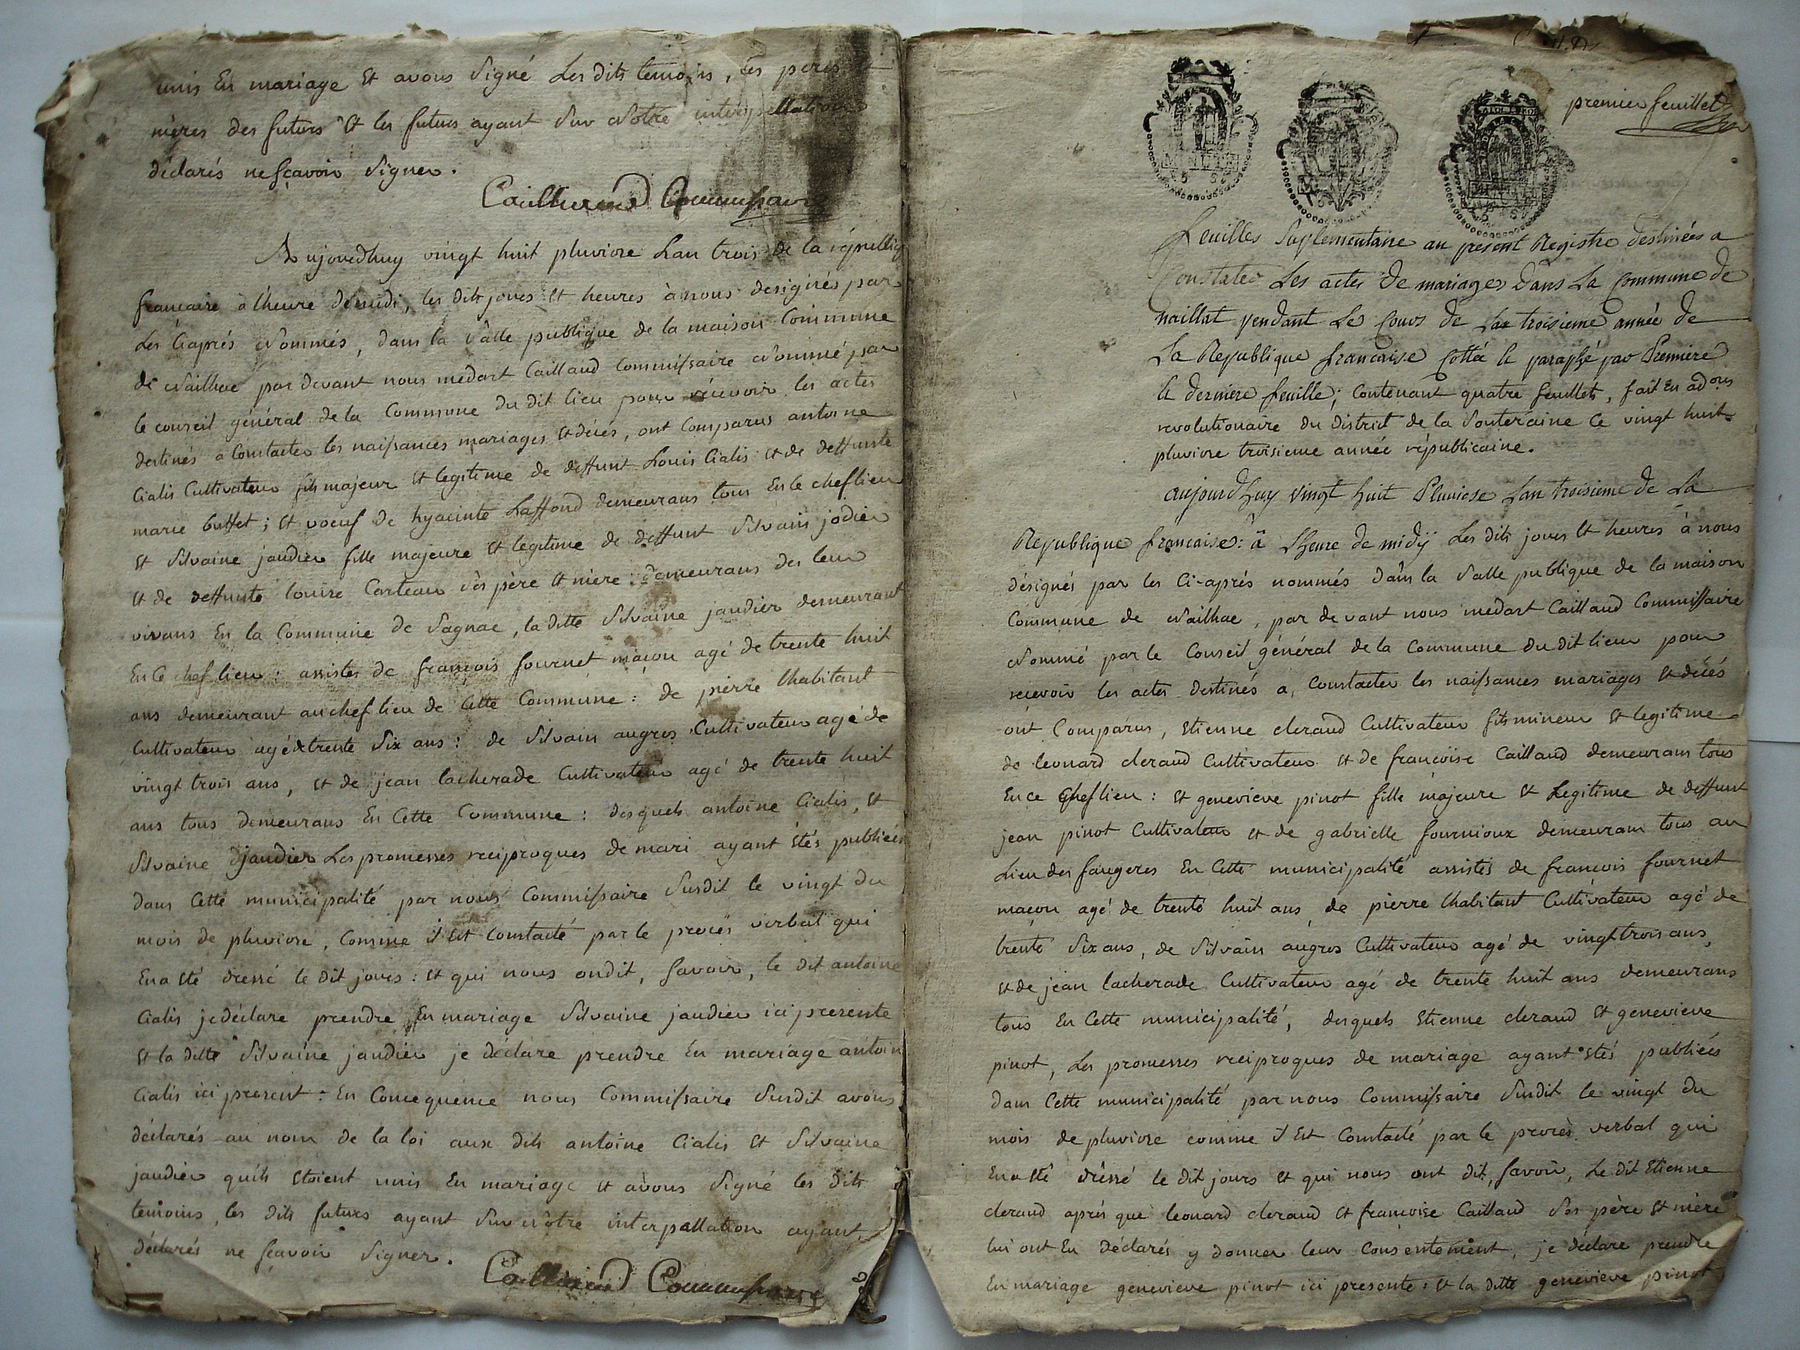 unis En mariage Et avous Signé Les dits temoins, les peres
mères des futurs Et les futurs ayant Sur Notre interpellation
déclarés ne sçavoir Signer.
Cailhaud Commissaire
Aujourdhuy vingt huit pluviose Lan trois de la républiq
francaise à lheure demidi, les dits jours Et heures à nous designés par
Les Ciaprés Nommés, dans la Salle publique de la maison Commune
de Nailhac par devant nous médart Caillaud Commissaire Nommé par
le conseil général de la Commune du dit lieu pour récevoir les actes
destinés a Constater les naissances mariages Et décés, ont Comparus antoine
Cialis Cultivateur fils majeur Et legitime de deffunt Louis Cialis Et de deffunte
marie buffet; Et voeuf de hyacinte Laffond demeurans tous En le cheflieu
Et Silvaine jaudier fille majeure Et legitime de deffunt Silvain jodier
Et de deffunte louise Carteau Ses père Et mère: demeurans des leur
vivans En la Commune de Sagnac, la ditte Silvaine jaudier demeurant
En Ce chef lieu: assistés de françois fournet maçon agé de trente huit
ans demeurant au chef lieu de Cette Commune: de pierre lhabitant
Cultivateur agé de trente Six ans: de Silvain augros Cultivateur agé de
vingt trois ans, et de jean lacherade Cultivateur agé de trente huit
ans tous demeurans En Cette Commune: desquels antoine Cialis, Et
Silvaine jaudier Les promesses reciproques de mari ayant Étés publiées
dans Cette municipalité par nous Commissaire Susdit le vingt du
mois de pluviose, Comme il Est Constaté par le procès verbal qui
En a Eté dressé le dit jour: Et qui nous ondit, Savoir, le dit antoine
Cialis je déclare prendre En mariage Silvaine jaudier ici presente
Et la ditte Silvaine jaudier je déclare prendre En mariage antoin
Cialis ici present: En Consequence nous Commissaire Susdit avous
déclarés au nom de la loi aux dits antoine Cialis Et Silvaine
jaudier quils Etoient unis En mariage Et avous Signé les dits
temoins, les dits futurs ayant Sur nôtre interpallation ayant
déclarés ne sçavoir Signer.
Cailhaud Commissaire
premier feuillet
Feuilles Suplementaire au present Registre destinées a
Constater Les actes de mariages Dans La Commune de
naillat pendant Le Cours de Lan troisieme année de
La Republique francaise Cotté Et paraphé par Premiere
Et derniere feuille; Contenant quatre feuillets, fait En adons
revolutionaire du district de la Souteraine Ce vingt huit
pluviose troisieme année républicaine.
aujourdhuy vingt huit Pluviose Lan troisieme de La
Republique francaise: a Lheure de midy Les dits jours Et heures à nous
désignés par les Ci-aprés nommés dans la Salle publique de la maison
Commune de Nailhac, par devant nous médart Caillaud Commissaire
Nommé par le Conseil général de la Commune du dit lieu pour
recevoir les actes destinés a, Constater les naissances mariages Et décés
ont Comparus, Etienne deraud Cultivateur fils mineur Et legitime
de leonard deraud Cultivateur et de françoise Caillaud demeurans tous
En ce Chef lieu: Et genevieve pinot fille majeure Et Legitime de deffunt
jean pinot Cultivateur et de gabrielle fournioux demeurans tous au
Lieu des faugeres En Cette municipalité assistés de françois fournet
maçon agé de trente huit ans, de pierre lhabitant Cultivateur agé de
trente Six ans, de Silvain augros Cultivateur agé de vingt trois ans,
et de jean lacherade Cultivateur agé de trente huit ans demeurans
tous En Cette municipalité, desquels Etienne deraud Et genevieve
pinot, Les promesses reciproques de mariage ayant Etés publiées
dans Cette municipalité par nous Commissaire Susdit le vingt du
mois de pluviose comme il Est Constaté par le procès verbal qui
En a Eté dréssé le dit jours Et qui nous ont dit, Savoir, Le dit Etienne
deraud aprés que leonard deraud Et françoise Caillaud Ses père Et mère
lui ont Eu déclarés y donner leur Consentement, je déclare prendre
En mariage genevieve pinot ici presente: Et la ditte genevieve pinot